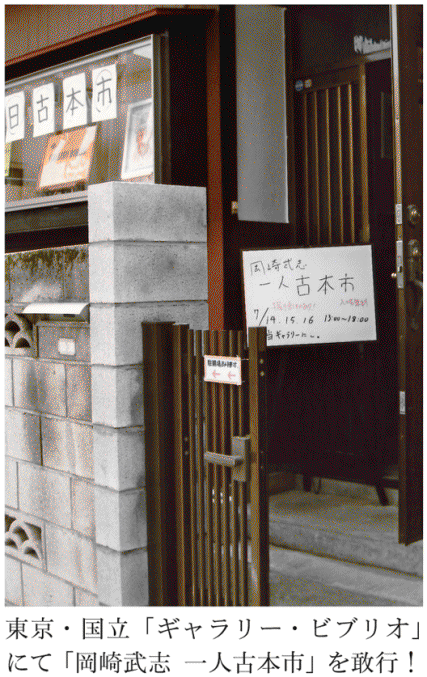 古本市
岡崎武志
一人古本市
7/14.15.16 13:00~18:00
当ギャラリーに
東京・国立「ギャラリー・ビブリオ」
にて「岡崎武志 一人古本市」を敢行！